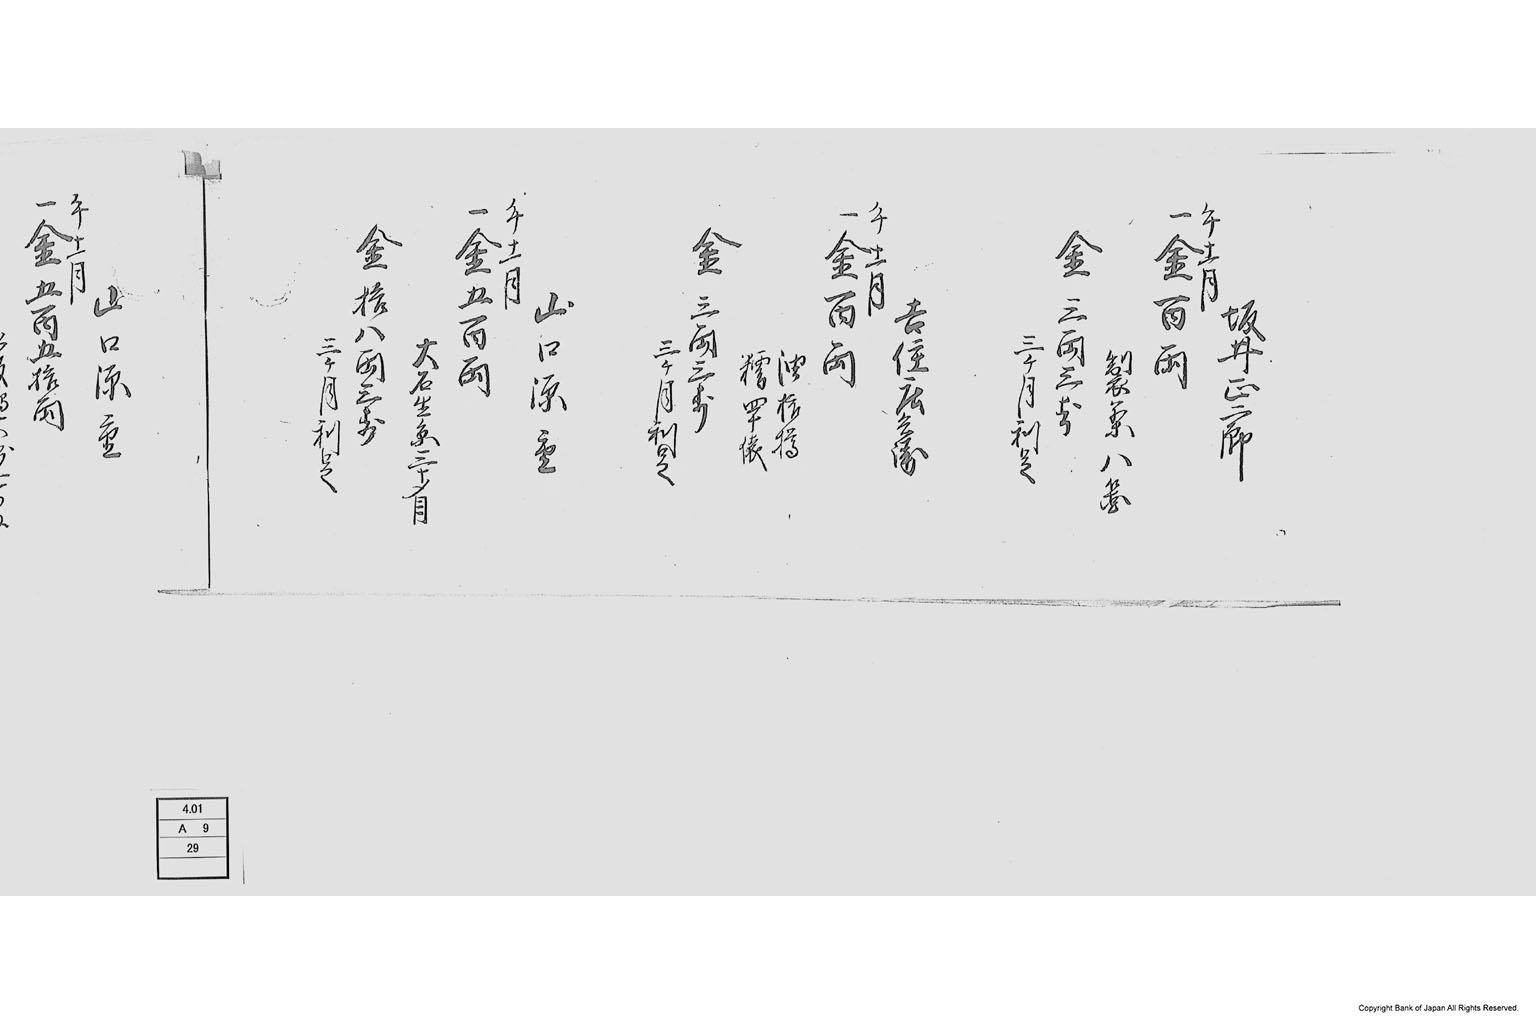 坂井正三郎
午十二月
一金百両
製薬八箇
金三両三歩
三ヶ月利足
吉住庄兵衛
午十二月
一金百両
油拾樽
糯四十俵
金三両三歩
三ヶ月利足
山口源重
午十一月
一金五百両
大石生糸三十〆目
金拾八両三歩
三ヶ月利足
山口源重
午十一月
一金五百五拾両
4.01
A 9
29
Copyright Bank of Japan All Rights Reserved.